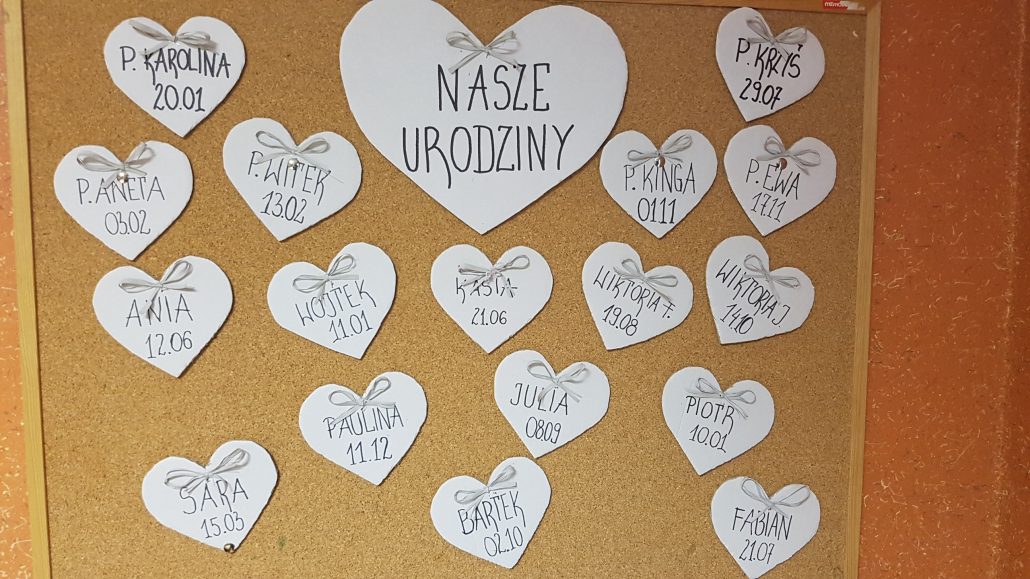 NASZE
URODZINY
P. KAROLINA
20.01
P. KRZYŚ
29.07
P. ANETA
03.02
P. WITEK
13.02
P. KINGA
01.11
P. EWA
17.11
ANIA
12.06
WOJTEK
11.01
KASIA
21.06
WIKTORIA F.
19.08
WIKTORIA J.
14.10
PAULINA
11.12
JULIA
08.09
PIOTR
10.01
SARA
15.03
BARTEK
02.10
FABIAN
21.07